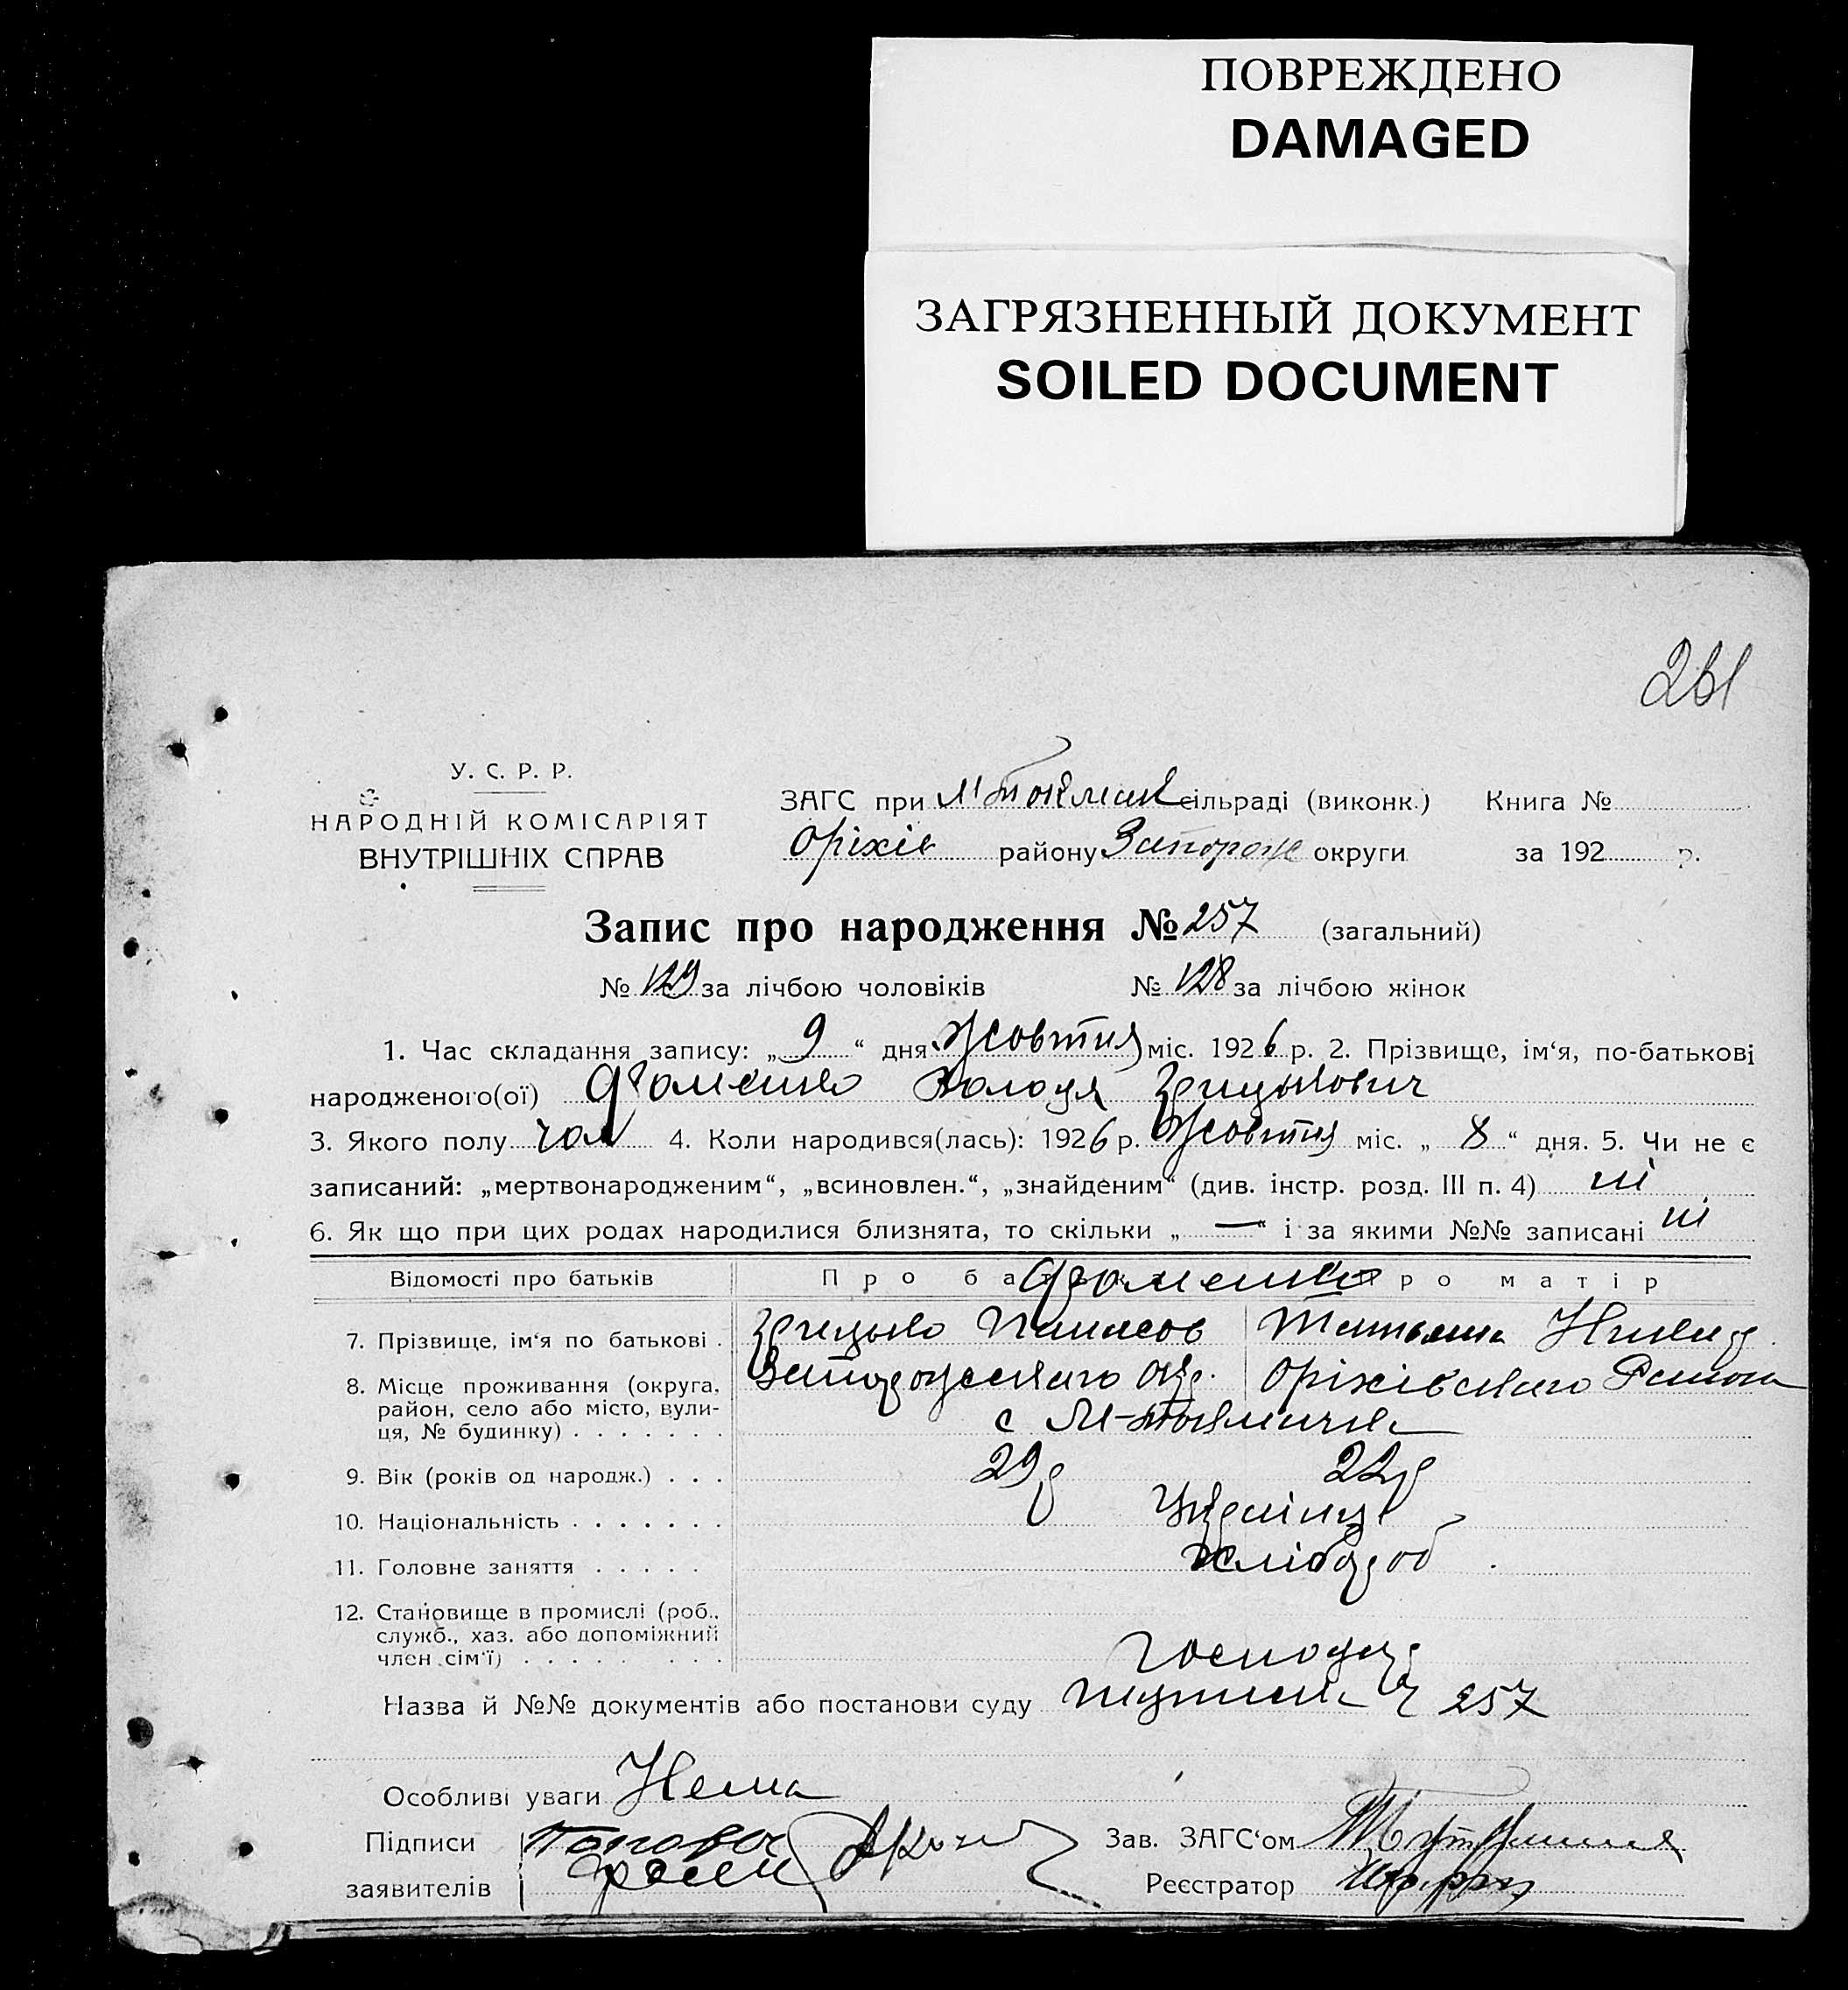 ПОВРЕЖДЕНО
DAMAGED
ЗАГРЯЗНЕННЫЙ ДОКУМЕНТ
SOILED DOCUMENT
261
У. С. Р. Р.
НАРОДНІЙ КОМІСАРІЯТ
ВНУТРІШНІХ СПРАВ
ЗАГС при М Токмак сільраді (виконк.) Книга №
Оріхів району Запорож округи за 192 р.
Запис про народження № 257 (загальний)
№ 129 за лічбою чоловіків № 128 за лічбою жінок
1. Час складання запису: „ 9 “ дня Жовтня міс. 1926 р. 2. Прізвище, ім‘я, по-батькові
народженого(ої) Фоменко Володя Грицькович
3. Якого полу чол 4. Коли народився(лась): 1926 р. Жовтня міс. „ 8 “ дня. 5. Чи не є
записаний: „мертвонародженим“, „всиновлен.“, „знайденим“ (див. інстр. розд. III п. 4) ні
6. Як що при цих родах народилися близнята, то скільки „ — “ і за якими №№ записані ні
Відомості про батьків Про ба Фоменко ро матір
7. Прізвище, ім‘я по батькові . Грицько Панасов Татьяна
8. Місце проживання (округа, Запорожського окр. Оріхівського Района
район, село або місто, вули- с М-Токмачка
ця, № будинку) . . . . . . .
9. Вік (років од народж.) . . . 29 р 22 р
10. Національність . . . . . . . Українці
11. Головне заняття . . . . . хлібороб
12. Становище в промислі (роб.,
служб., хаз. або допоміжний
член сім‘ї) . . . . . . . . Господар
Назва й №№ документів або постанови суду 257
Особливі уваги Нема
Підписи
заявителів
Зав. ЗАГС‘ом
Реєстратор